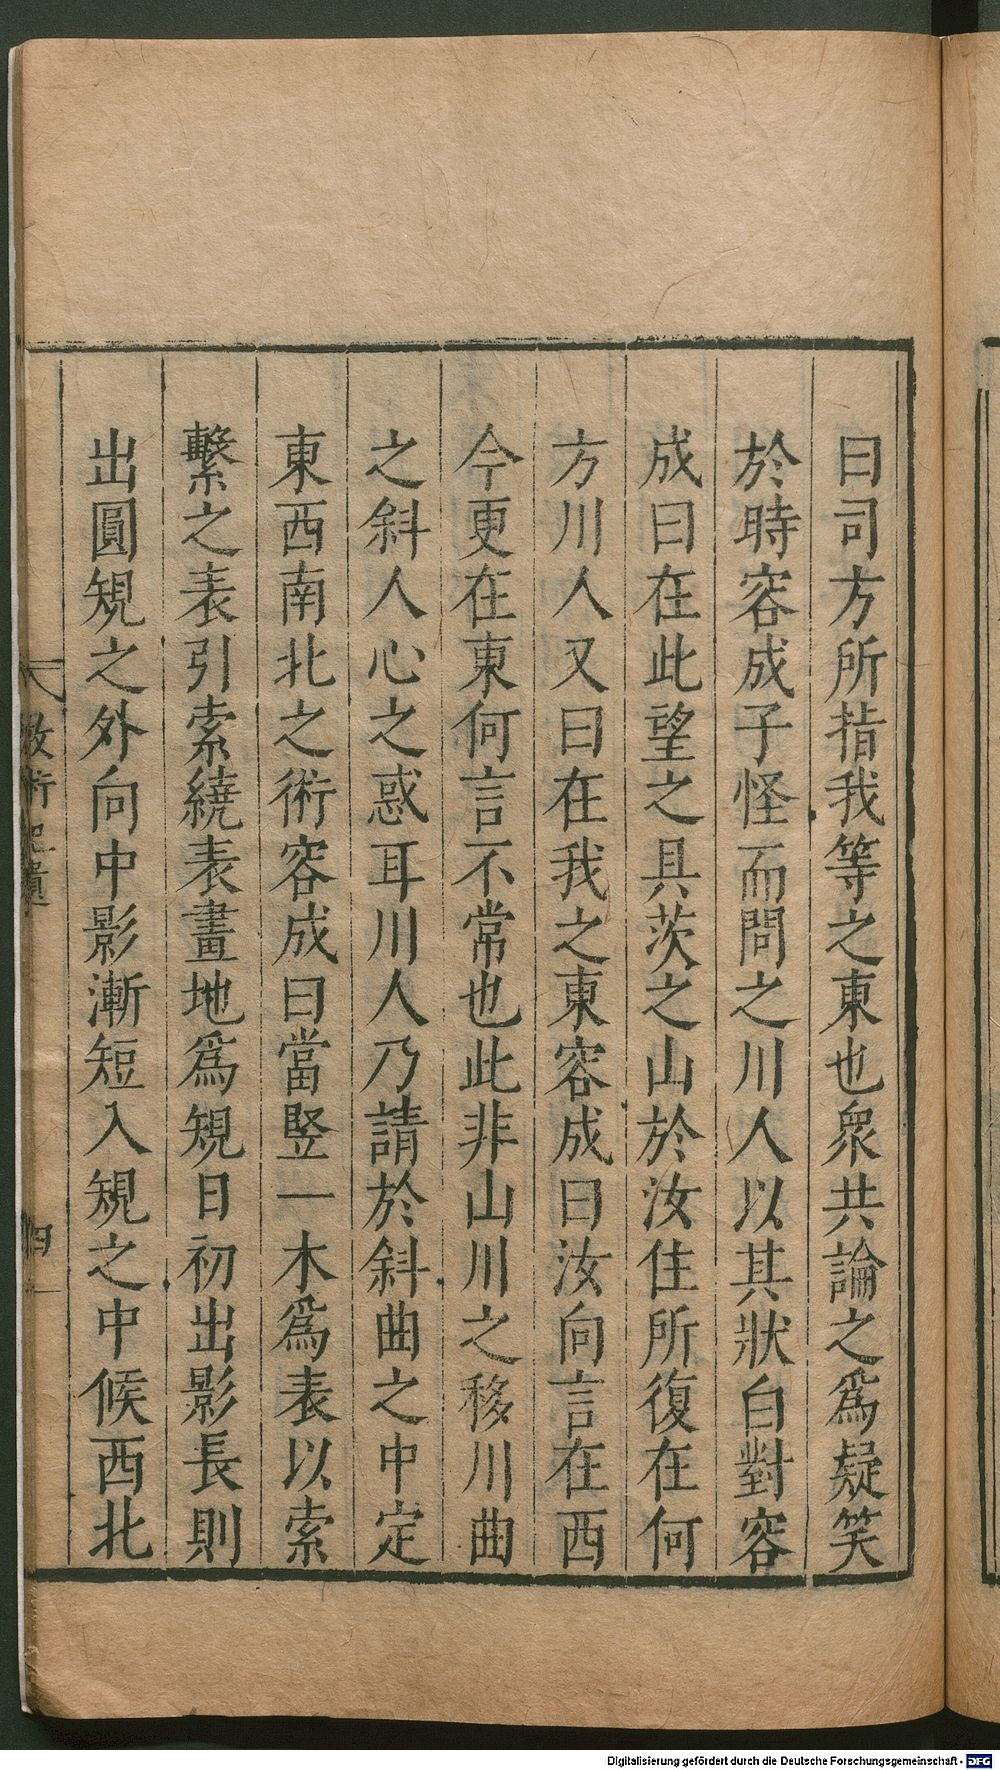 曰司方所指我等之東也衆共論之爲疑笑
於時容成子怪而問之川人以其狀白對容
成曰在此望之具茨之山於汝住所復在何
方川人又曰在我之東容成曰汝向言在西
今更在東何言不常也此非山川之移川曲
之斜人心之惑耳川人乃請於斜曲之中定
東西南北之術容成曰當竪一木爲表以索
繫之表引索繞表畫地爲規日初出影長則
出圓規之外向中影漸短入規之中候西北
數術記遺
四
Digitalisierung gefördert durch die Deutsche Forschungsgemeinschaft - DFG